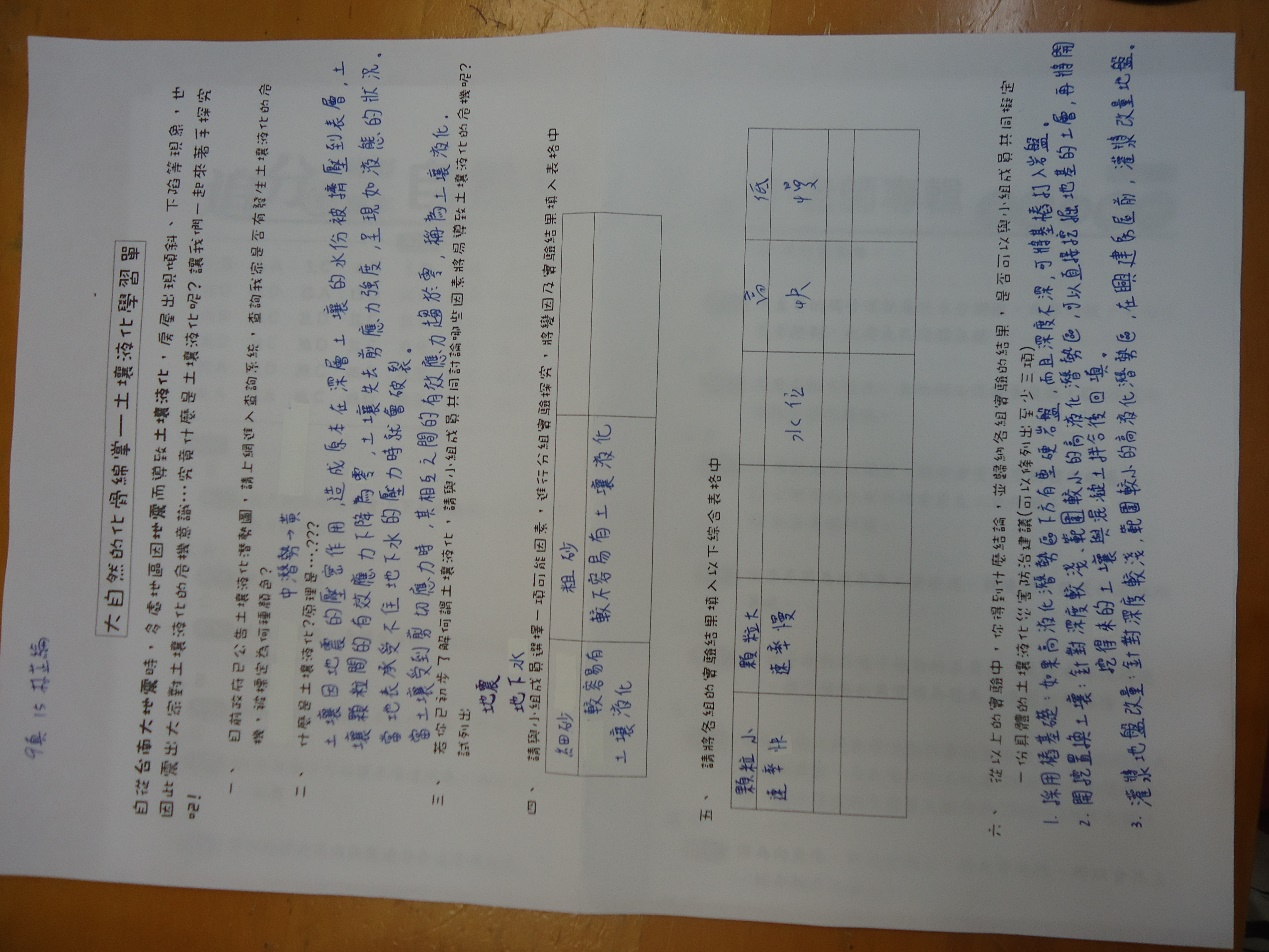 9真 15
大自然的化骨綿掌—土壤液化學習單
自從台南大地震時，多處地區因地震而導致土壤液化，房屋出現傾斜、下陷等現象，也
因此震出大眾對土壤液化的危機意識…究竟什麼是土壤液化呢?讓我們一起來著手探究
吧!
一、 目前政府已公告土壤液化潛勢圖，請上網進入查詢系統，查詢我家是否有發生土壤液化的危
機，被標定為何種顏色?
中潛勢→黃
二、 什麼是土壤液化?原理是….???
土壤因地震的壓密作用,造成原本在深層土壤的水份被擠壓到表層,土
壤顆粒間的有效應力下降為零,土壤失去剪應力強度,呈現如液態的狀況。
當地表承受不住地下水的壓力時就會破裂。
當土壤受到剪切應力時,其相互之間的有效應力趨於零,稱為土壤液化.
三、 若你已初步了解何謂土壤液化，請與小組成員共同討論哪些因素將易導致土壤液化的危機呢?
試列出
地震
地下水
四、 請與小組成員選擇一項可能因素，進行分組實驗探究，將變因及實驗結果填入表格中
細砂 粗砂
較容易有 較不容易有土壤液化
土壤液化
五、 請將各組的實驗結果填入以下綜合表格中
顆粒小 顆粒大 水位 高 低
速率快 速率慢 快 慢
六、 從以上的實驗中，你得到什麼結論，並歸納各組實驗的結果，是否可以與小組成員共同擬定
一份具體的土壤液化災害防治建議(可以條列出至少三項)
1. 採用樁基礎:如果高液化潛勢區下方有堅硬岩盤,而且深度不深,可將基樁打入岩盤。
2. 開挖置換土壤:針對深度較淺、範圍較小的高液化潛勢區,可以直接挖掘地基的土層,再將開
挖得來的土壤與混凝土拌合後回填。
3. 灌漿地盤改量:針對深度較淺,範圍較小的高液化潛勢區,在興建房屋前,灌漿改量地盤。